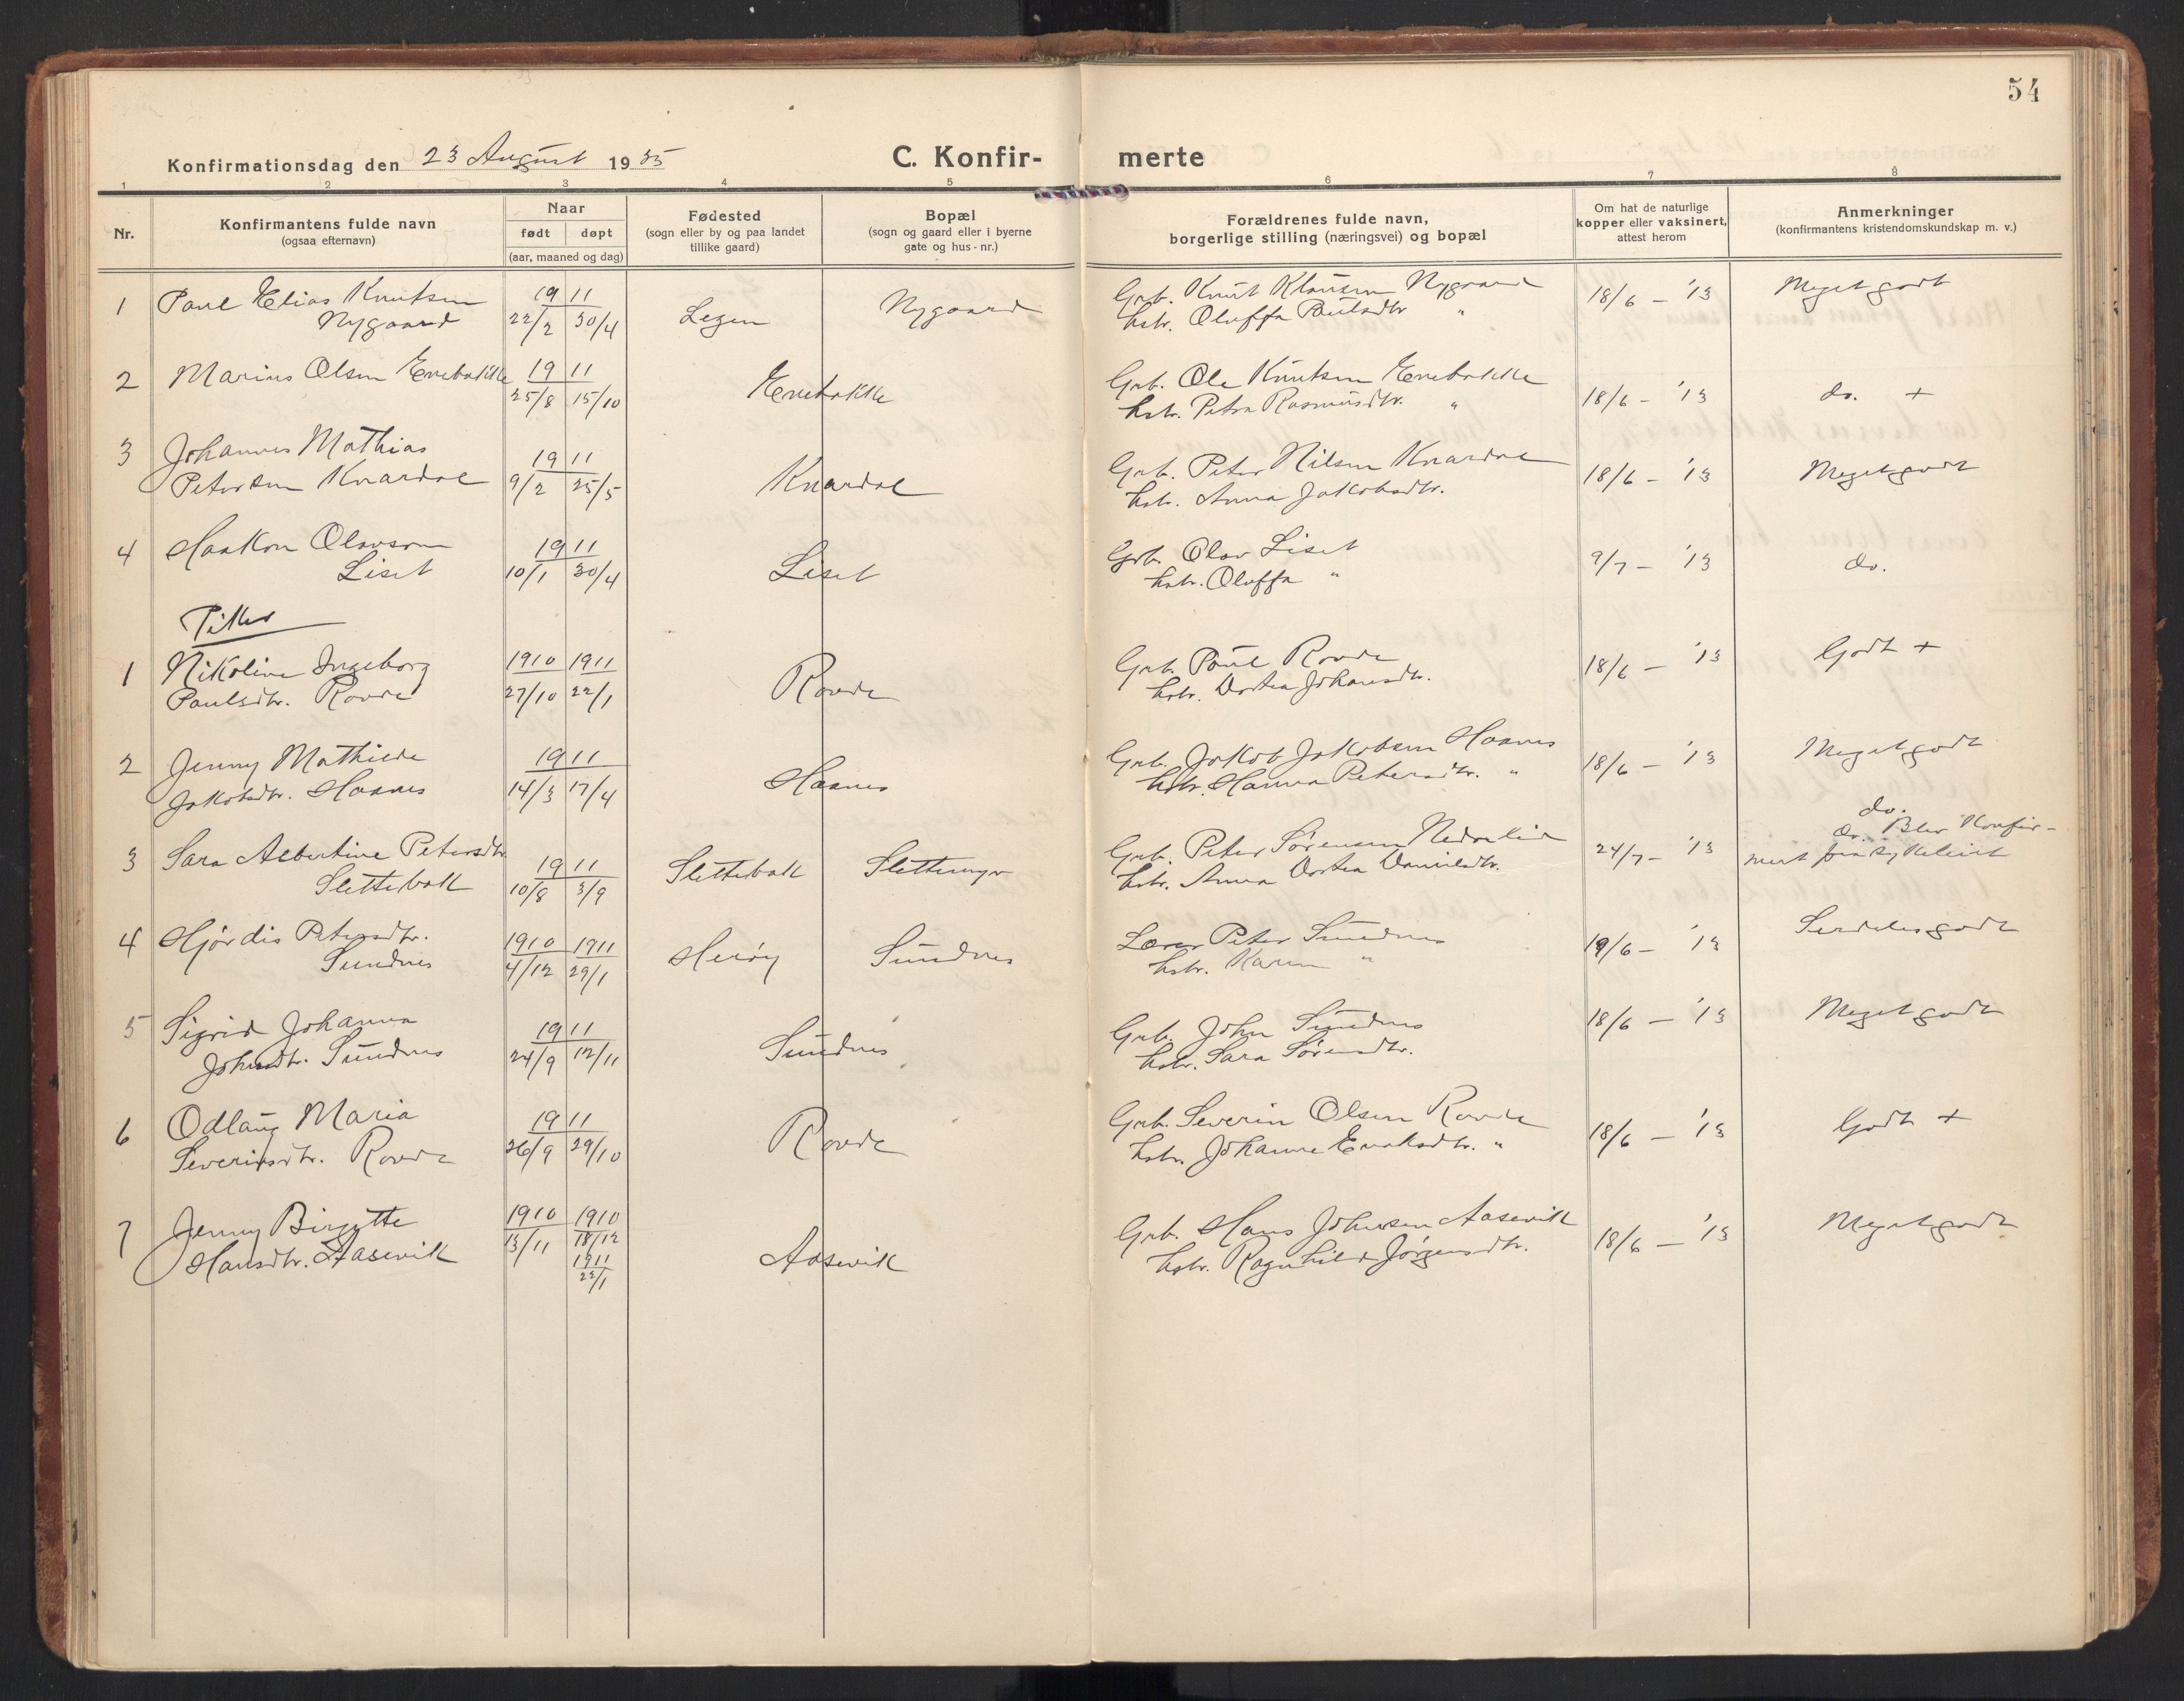 54
Konfirmationsdag den 23 August 1935 C. Konfirmerte
1 2 3 4 5 6 7 8
Nr.
Konfirmantens fulde navn
(ogsaa efternavn)
Naar
født døpt
(aar, maaned og dag)
Fødested
(sogn eller by og paa landet
tillike gaard)
Bopæl
(sogn og gaard eller i byerne
gate og hus - nr.)
Forældrenes fulde navn,
borgerlige stilling (næringsvei) og bopæl
Om hat de naturlige
kopper eller vaksinert,
attest herom
Anmerkninger
(konfirmantens kristendomskundskap m. v.)
1 Paul Elias Knutsen 19 11 Grb. Knut Klausen Nygaard 18/6 - '13 Meget godt
Nygaard 22/2 30/4 Legen Nygaard hstr. Oluffa Paulsdtr "
2 Marius Olsen Enebakke 19 11 Grb. Ole Knutsen Enebakke
25/8 15/10 Enebakke hstr. Petra Rasmusdtr. " 18/6 - '13 do. +
3 Johannes Mathias 19 11 Grb. Peter Nilsen Knardal
Petersen Knardal 9/2 25/5 Knardal hstr. Anna Jakobsdtr. 18/6 - '13 Meget godt
4 Haakon Olavson 19 11 Grb. Olav Liset
Liset 10/1 30/4 Liset hstr. Oluffa " 9/7 - '13 do.
Piker
1 Nikoline Ingeborg 1910 1911 Grb. Paul Rovde 18/6 - '13 Godt +
Paulsdtr. Rovde 27/10 22/1 Rovde hstr. Dortea Johansdtr.
2 Jenny Mathilde 19 11 Grb. Jakob Jakobsen Haanes 18/6 - '13 Meget godt
Jakobsdtr. Haanes 14/3 17/4 Haanes hstr. Hanna Petersdtr. "
3 Sara Albertine Petersdtr 19 11 Grb. Peter Sørensen Nedrelid 24/7 - '13 do.
Slettebak 10/8 3/9 Slettebak Slettemyr hstr. Anna Dortea Danielsdtr. Blev Konfir-
mert fra sykeleiet
4 Hjørdis Petersdtr. 1910 1911 Lærer Peter Sundnes 19/6 - '13 Serdeles godt
Sundnes 4/12 29/1 Herøy Sundnes hstr. Karen "
5 Sigrid Johanna 19 11 Grb. John Sundnes 18/6 - '13 Meget godt
Johnsdtr. Sundnes 24/9 12/11 Sundnes hstr. Sara Sørensdtr.
6 Odlaug Maria 19 11 Grb. Severin Olsen Rovde 18/6 - '13 Godt +
Severinsdtr. Rovde 26/9 29/10 Rovde hstr. Johanne Enoksdtr. "
7 Jenny Birgitte 1910 1910 Grb. Hans Johnsen Aasevik 18/6 - '13 Meget godt
Hansdtr. Aasevik 13/11 18/12 Aasevik hstr. Ragnhild Jørgensdtr.
1911
22/1